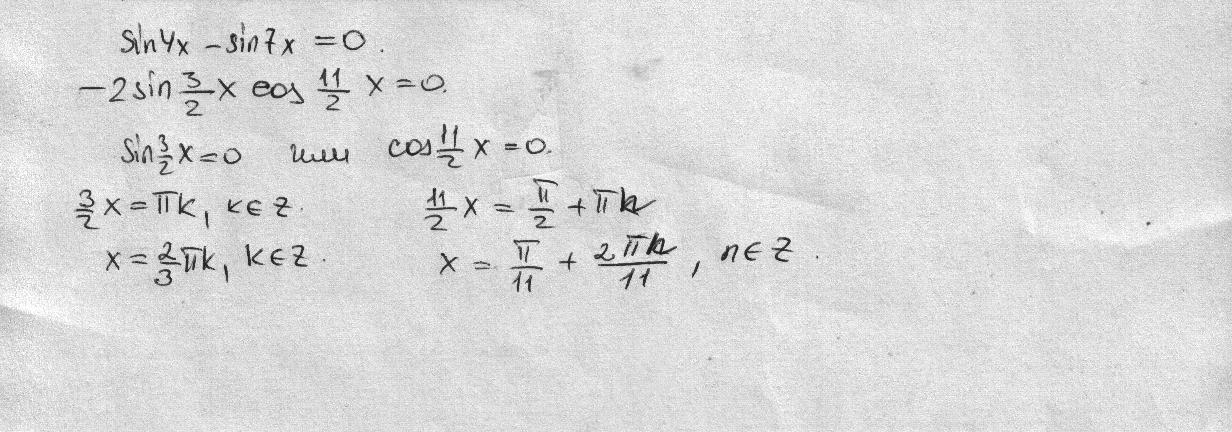 sin4x - sin7x = 0.
-2sin 3/2 x cos 11/2 x = 0.
sin 3/2 x = 0 или cos 11/2 x = 0.
3/2 x = πk, k∈Z. 11/2 x = π/2 + πn
x = 2/3 πk, k∈Z. x = π/11 + 2πn/11, n∈Z.